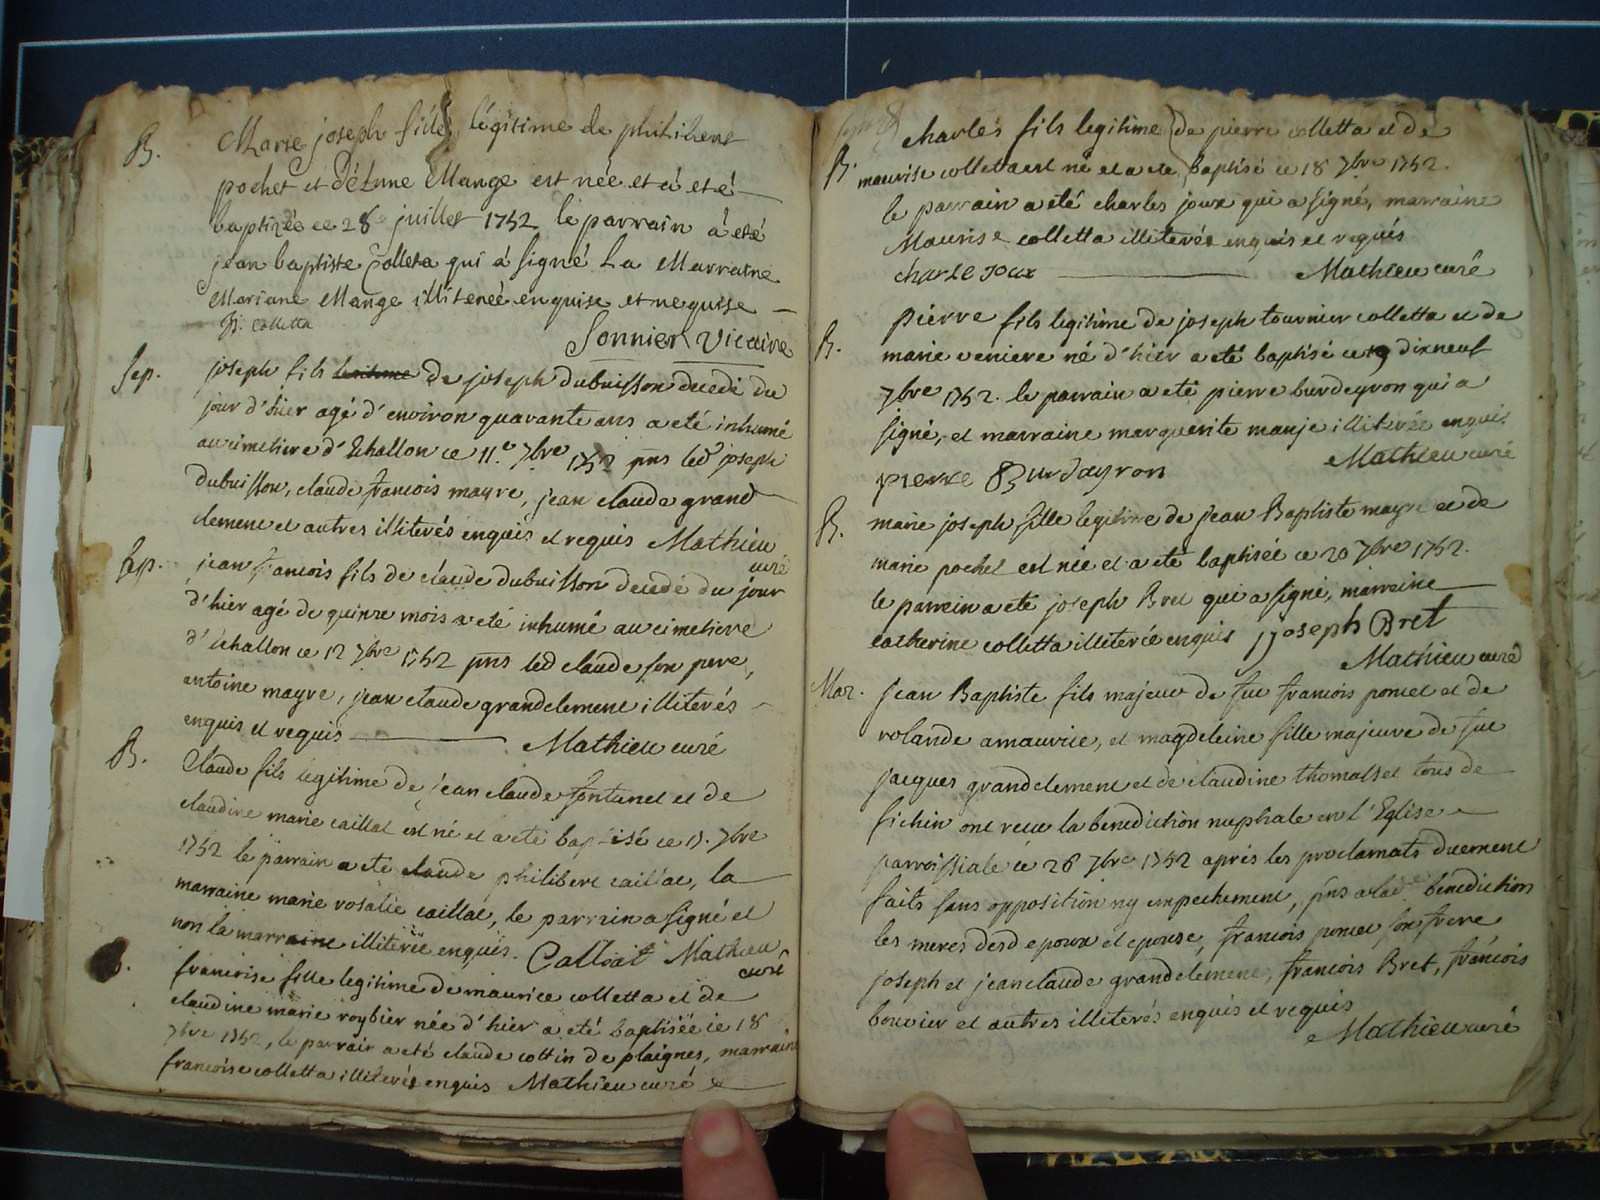 B. Marie joseph fille légitime de philibert
pochet et d'étienne Mange est née et à eté
baptizée ce 28 juillet 1752 le parrain à eté
jean baptiste Colleta qui à signé La Marraine
Mariane Mange illiterée enquise et requise
J. B. Colletta
Sonnier Vicaire
Sep. joseph fils de joseph dubuisson decedé du
jour d'hier agé d'environ quarante ans a eté inhumé
au cimetiere d'Echallon ce 11.e 7bre 1752 pns led joseph
Dubuisson, claude francois mayre, jean claude grand
clement et autres illiterés enquis et requis Mathieu
curé
Sep. jean francois fils de claude dubuisson decedé du jour
d'hier agé de quinze mois a eté inhumé au cimetiere
d'échallon ce 12 7bre 1752 pns led claude son pere,
antoine mayre, jean claude grandclement illiterés
enquis et requis Mathieu curé
B. Claude fils legitime de jean claude fontanet et de
claudine marie caillat est né et a eté baptisé ce 17. 7bre
1752 le parrain a eté claude philibert caillat, la
marraine marie rosalie caillat, le parrain a signé et
non la marraine illiterée enquis. Calliat Mathieu
curé
B. francoise fille legitime de maurice colletta et de
claudine marie roybier née d'hier a eté baptisée ce 18
7bre 1752, le parrain a eté claude cottin de plaignes, marraine
francoise colletta illiterée enquis Mathieu curé
charles fils legitime de pierre colletta et de
B. maurise colletta est né et a eté baptisé ce 18 7bre 1752.
le parrain a eté charles joux qui a signé, marraine
Maurise colletta illiterés enquis et requis
charle joux Mathieu curé
pierre fils legitime de joseph tournier colletta et de
B. marie veniere né d'hier a eté baptisé ce 19 dixneuf
7bre 1752. le parrain a eté pierre burdeyron qui a
signé, et marraine marguerite manje illiterée enquis.
Mathieu curé
pierre Burdayron
B. marie joseph fille legitime de jean Baptiste mayre et de
marie pochet est née et a eté baptisée ce 20 7bre 1752.
le parrein a eté joseph Bret qui a signé, marreine
catherine colletta illiterée enquis joseph Bret
Mathieu curé
Mar. jean Baptiste fils majeur de fue francois poncet et de
rolande amaurice, et magdeleine fille majeure de fue
jacques grandclement et de claudine thomasset tous de
sichin ont recu la benediction nuphale en l'Eglise
parroissiale ce 28 7bre 1752 aprés les proclamats duement
faits sans opposition ny empechement, pns a lad benediction
les meres desd epoux et epouse, francois poncet son frere
joseph et jean claude grandclement, francois Bret, francois
bouvier et autres illiterés enquis et requis
Mathieu curé